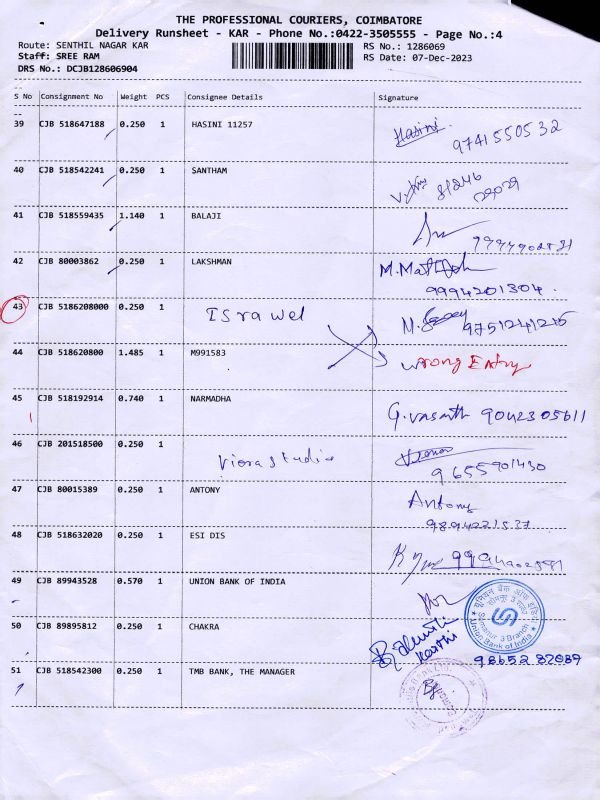 THE PROFESSIONAL COURIERS, COIMBATORE
Delivery Runsheet - KAR - Phone No.:0422-3505555 - Page No.:4
Route: SENTHIL NAGAR KAR
RS No.: 1286069
Staff: SREE RAM
RS Date: 07-Dec-2023
DRS No.: DCJB128606904
S No Consignment No Weight PCS Consignee Details Signature
39 CJB 518647188 0.250 1 HASINI 11257 Hasini
9741550532
40 CJB 518542241 0.250 1 SANTHAM
41 CJB 518559435 1.140 1 BALAJI
42 CJB 80003862 0.250 1 LAKSHMAN
9994201304.
43 CJB 5186208000 0.250 1 Israwel 9751241215
44 CJB 518620800 1.485 1 M991583 Wrong Entry
45 CJB 518192914 0.740 1 NARMADHA G.vasanth 9042305611
46 CJB 201518500 0.250 1 Viora studio
9655901430
47 CJB 80015389 0.250 1 ANTONY Antony
9894221537
48 CJB 518632020 0.250 1 ESI DIS
49 CJB 89943528 0.570 1 UNION BANK OF INDIA
यूनियन बैंक ऑफ इंडिया
3 Branch
Union Bank of India
50 CJB 89895812 0.250 1 CHAKRA
51 CJB 518542300 0.250 1 TMB BANK, THE MANAGER